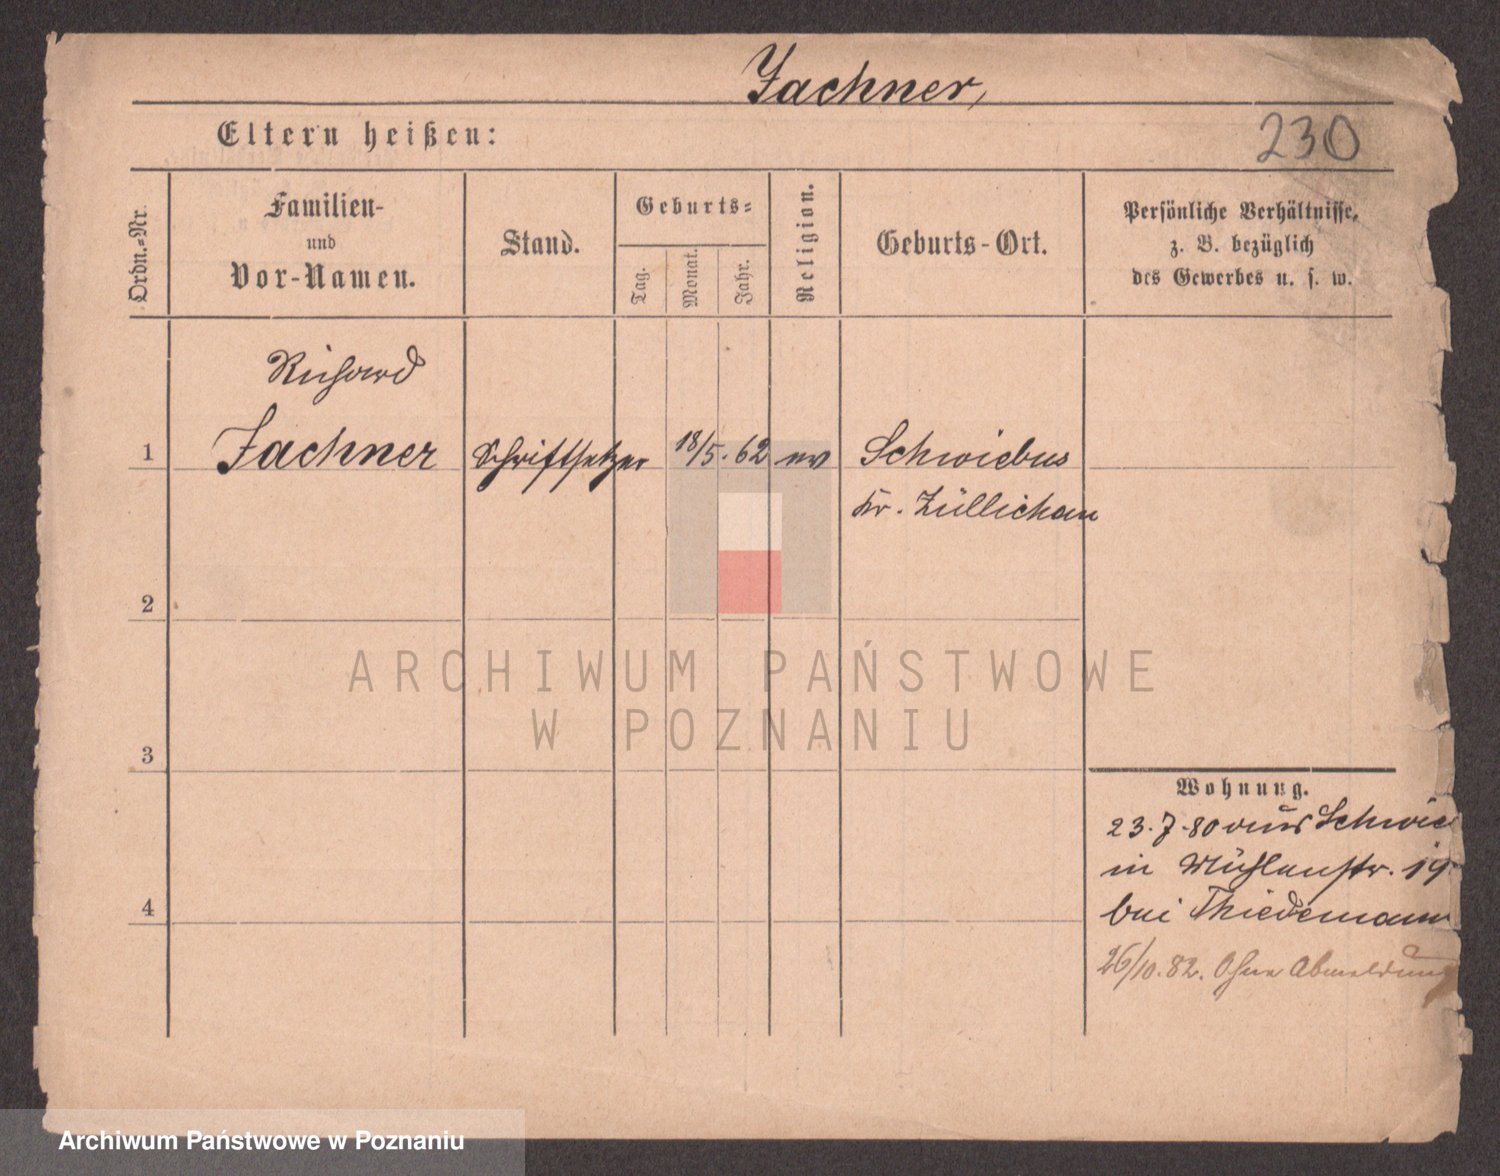 Jachner,
230
Eltern heißen:
Ordn.=Nr.
Familien-
und
Vor-Namen.
Stand.
Geburts=
Tag.
Monat.
Jahr.
Religion.
Geburts-Ort.
Persönliche Verhältnisse,
z. B. bezüglich
des Gewerbes u. s. w.
Richard
1 Jachner Schriftsetzer 18/5. 62 ev Schwiebus
Kr. Züllichau
2
ARCHIWUM PAŃSTWOWE
W POZNANIU
3
Wohnung.
23.7.80 aus Schwie
in Mühlenstr. 19
4
bei Thiedemann
26/10.82. Ohne Abmeldung
Archiwum Państwowe w Poznaniu